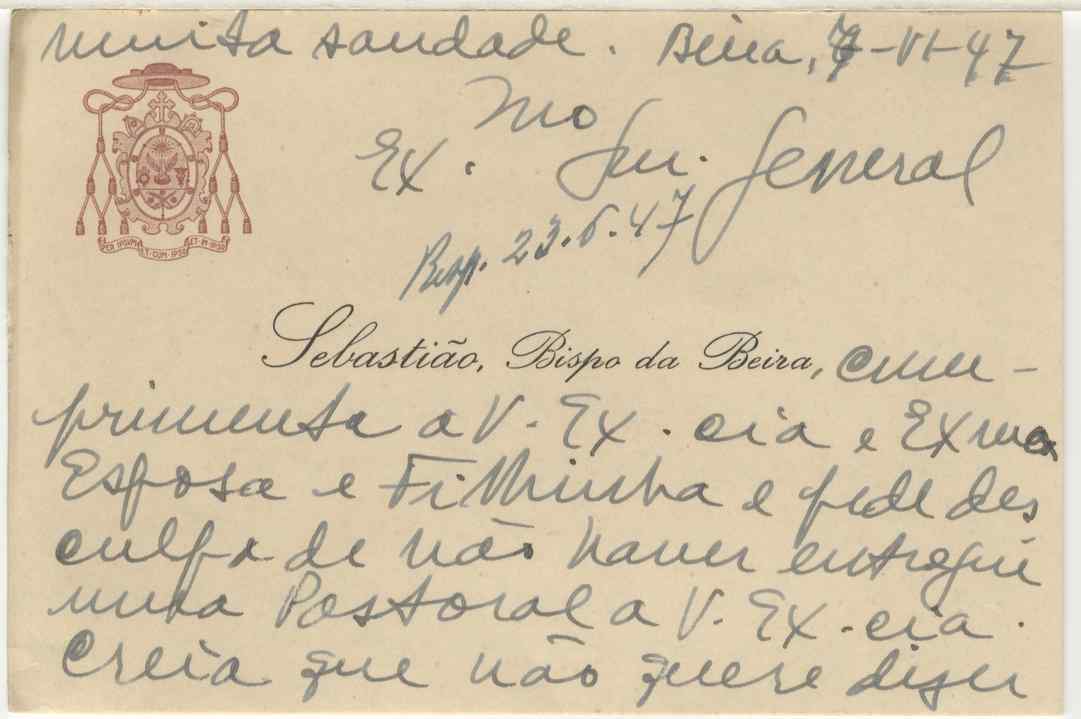 muita saudade. Beira, 7-VI-47
Ex.mo Snr. General
Resp. 23.6.47
PER IPSVM ET CVM IPSO ET IN IPSO
Sebastião, Bispo da Beira, cum-
primenta a V. Ex.cia e Exma
Esposa e Filhinha e pede des
culpa de não haver entregue
uma Pastoral a V. Ex.cia.
Creia que não quere dizer